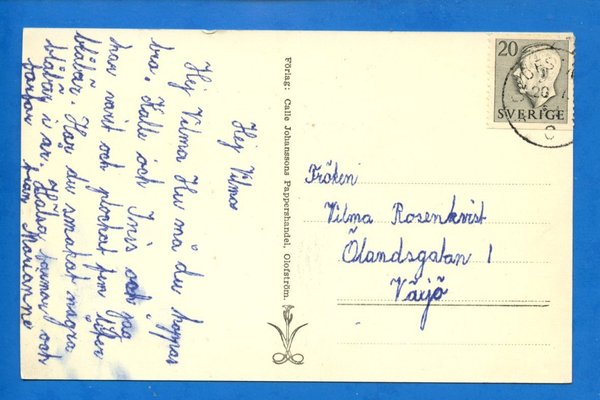 Hej Vilma
Hej Vilma Hu må du hoppas
bra. Kalle och Inis och pa
har varit och plockat fem liter
blåbär. Har du smakat några
blåbär i år. Hälsa farmor och
farfar från Marianne
Förlag: Calle Johanssons Pappershandel, Olofström.
20
SVERIGE
Fröken
Vilma Rosenkvist
Ölandsgatan 1
Växjö